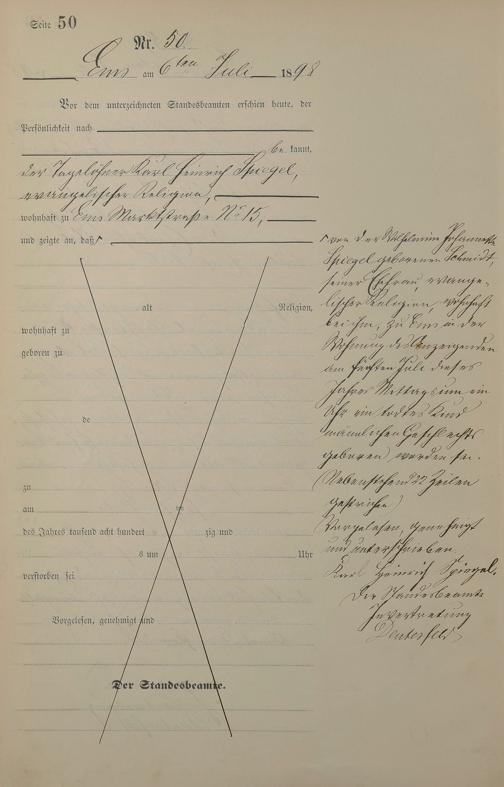 Seite 50
Nr. 50.
Ems am 6ten Juli 1898
Vor dem unterzeichneten Standesbeamten erschien heute, der
Persönlichkeit nach
be kannt,
der Tagelöhner Karl Heinrich Spiegel,
evangelischer Religion,
wohnhaft zu Ems Marktstraße No 15,
und zeigte an, daß
alt Religion,
wohnhaft zu
geboren zu
de
zu
am
des Jahres tausend acht hundert zig und
s um Uhr
verstorben sei
Vorgelesen, genehmigt und
Der Standesbeamte.
von der Wilhelmine Johannette
Spiegel geborenen Schmidt,
seiner Ehefrau, evange-
lischer Religion, wohnhaft
bei ihm, zu Ems in der
Wohnung des Anzeigenden
am fünften Juli dieses
Jahres Mittags um ein
Uhr ein todtes Kind
männlichen Geschlechts
geboren worden sei.
Nebenstehend 22 Zeilen
gestrichen
Vorgelesen, genehmigt
und unterschrieben
Karl Heinrich Spiegel.
Der Standesbeamte
In Vertretung